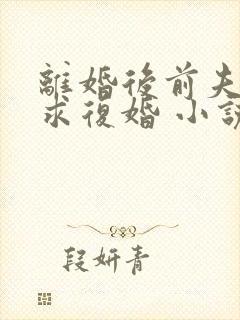 離婚後前夫
求復婚 小說
段妍青